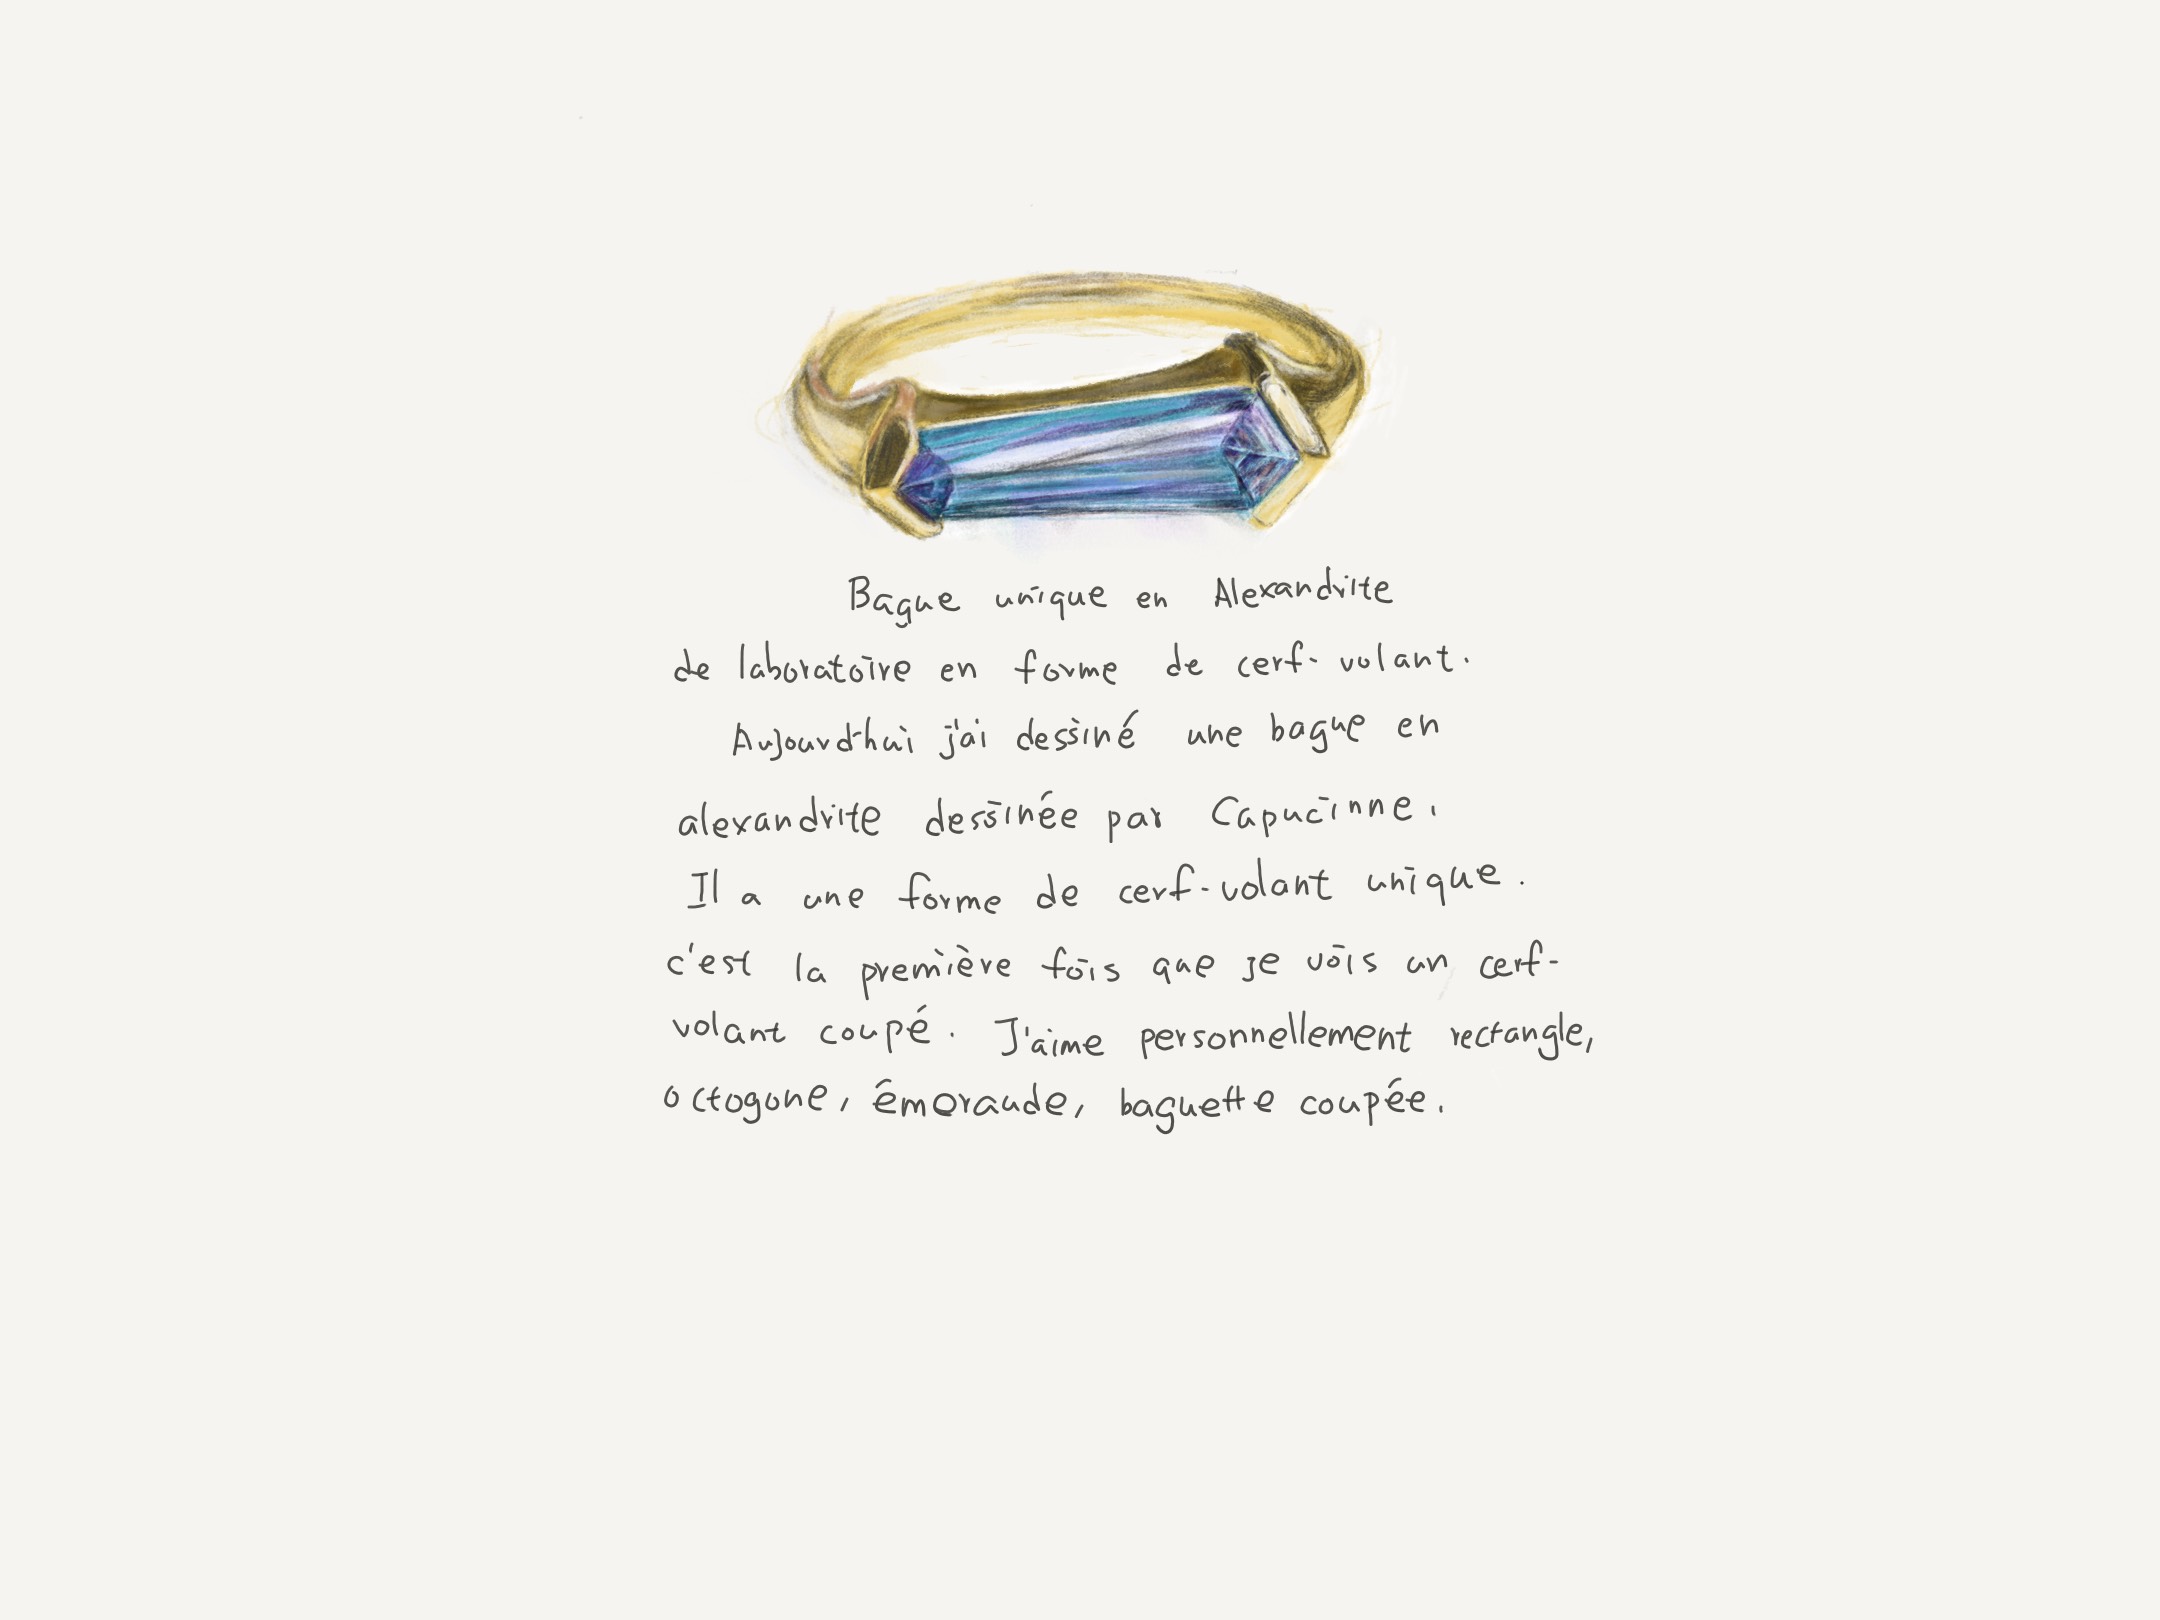 Bague unique en Alexandrite
de laboratoire en forme de cerf-volant.
Aujourd'hui j'ai dessiné une bague en
alexandrite dessinée par Capucinne.
Il a une forme de cerf-volant unique.
c'est la première fois que je vois un cerf-
volant coupé. J'aime personnellement rectangle,
octogone, émeraude, baguette coupée.